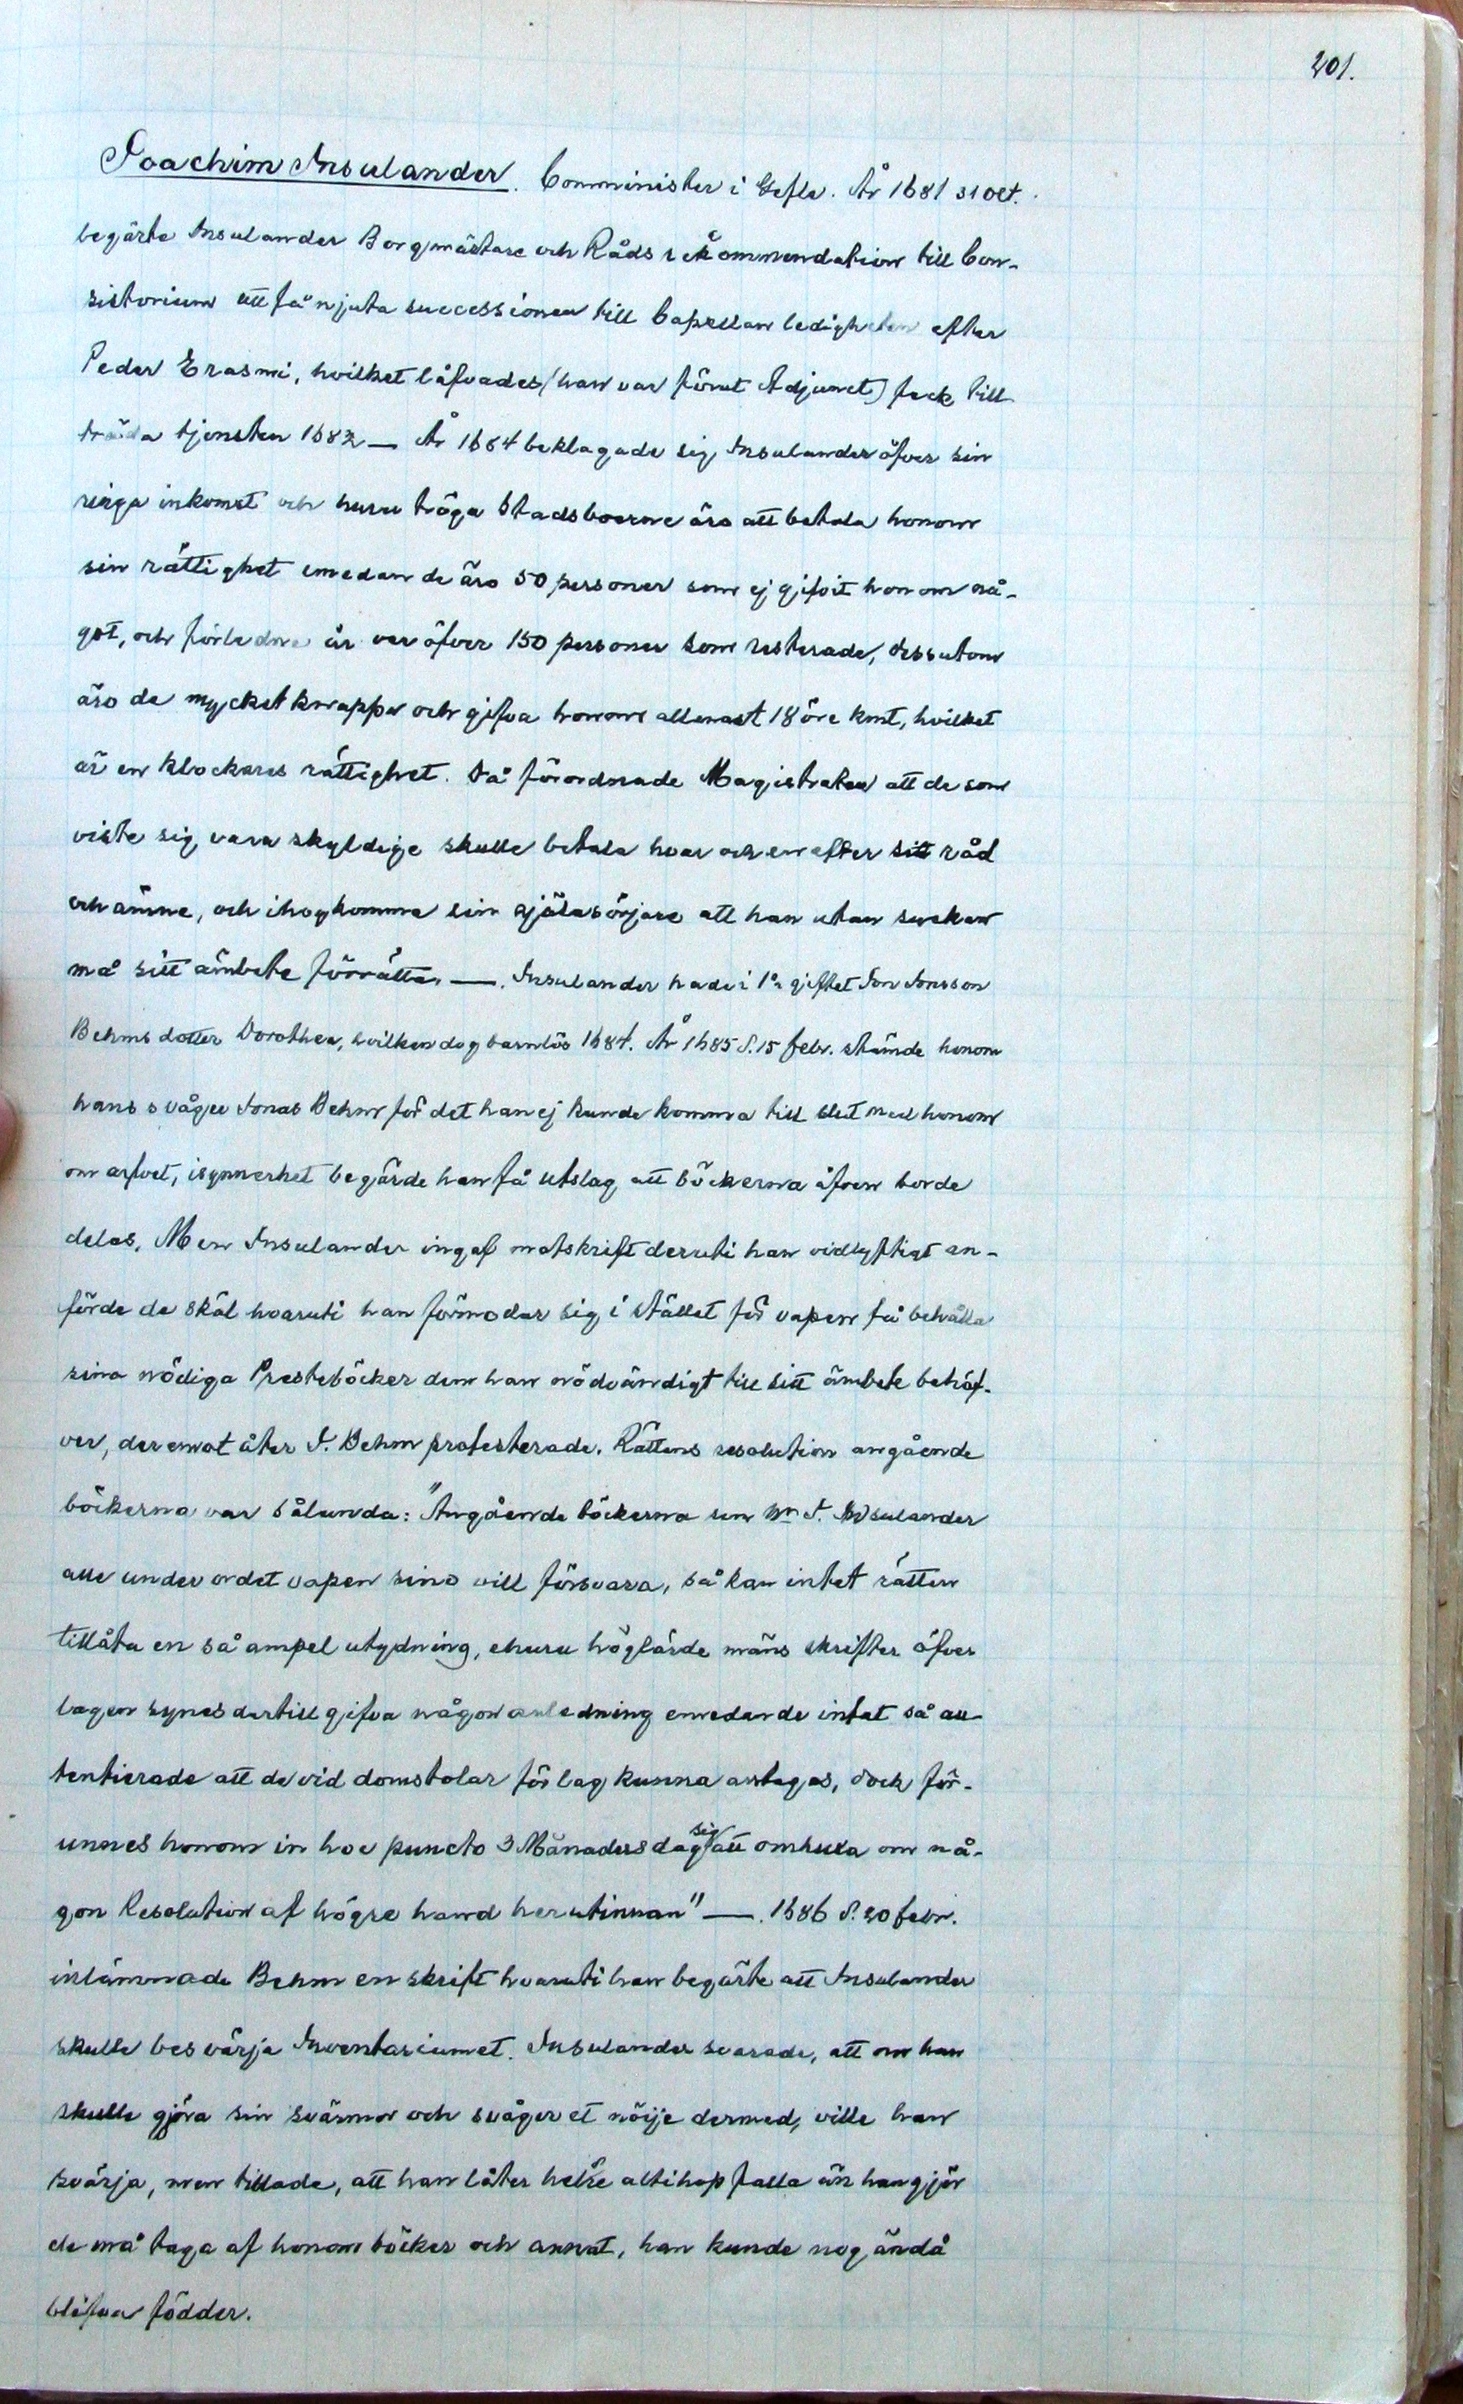 201.
Joachim Insulander. Comminister i Gefle. År 1681 31 Oct.
begärte Insulander Borgmästare och Råds rekommendation till Con-
sistorium att få njuta successionen till Capellan ledigheten efter
Peder Erasmi, hvilket låfvades (han var förut Adjunct) feck till-
träda tjensten 1682 — År 1684 beklagade sig Insulander öfver sin
ringa inkomst och huru tröga Stadsboerne äro att betala honom
sin rättighet emedan de äro 50 personer som ej gifvit honom nå-
got, och förledne år var öfver 150 personer som resterade, dessutom
äro de mycket knappa och gifva honom allenast 18 öre kmt, hvilket
är en klockares rättighet. Då förordnade Magistraten att de som
viste sig vara skyldige skulle betala hvar och en efter sitt råd
och ämne, och ihogkomma sin själasörjare att han utan suckan
må sitt ämbete förrätta. —. Insulander hade i 1a giftet Jon Jonsson
Behms dotter Dorothea, hvilken dog barnlös 1684. År 1685 d. 15 febr. stämde honom
hans svåger Jonas Behm för det han ej kunde komma till slut med honom
om arfvet, isynnerhet begärde han få utslag att böckerna äfven borde
delas. Men Insulander ingaf motskrift deruti han vidlyftigt an-
förde de skäl hvaruti han förmodar sig i stället för vapen få behålla
sina nödiga Presteböcker dem han nödvändigt till sitt ämbete behöf-
ver, deremot åter J. Behm protesterade. Rättens resolution angående
böckerna var sålunda: "Angående böckerna som Hr J. Insulander
alle under ordet vapen sino vill försvara, så kan intet rätten
tillåta en så ampel utydning, ehuru höglärde mäns skrifter öfver
lagen synes dertill gifva någon anledning emedan de intet så au-
tentierade att de vid domstolar för lag kunna antagas, doch för-
unnes honom in hoc puncto 3 Månaders dag sig att omhuxa om nå-
gon Resolution af högre hand herutinnan" —. 1686 d. 20 febr.
inlämnade Behm en skrift hvaruti han begärte att Insulander
skulle besvärja Inventariumet. Insulander svarade, att om han
skulle gjöra sin svärmor och svåger et nöije dermed, ville han
svärja, men tillade, att han låter helre altihop falla än han gjör
de må taga af honom böcker och annat, han kunde nog ändå
blifva födder.